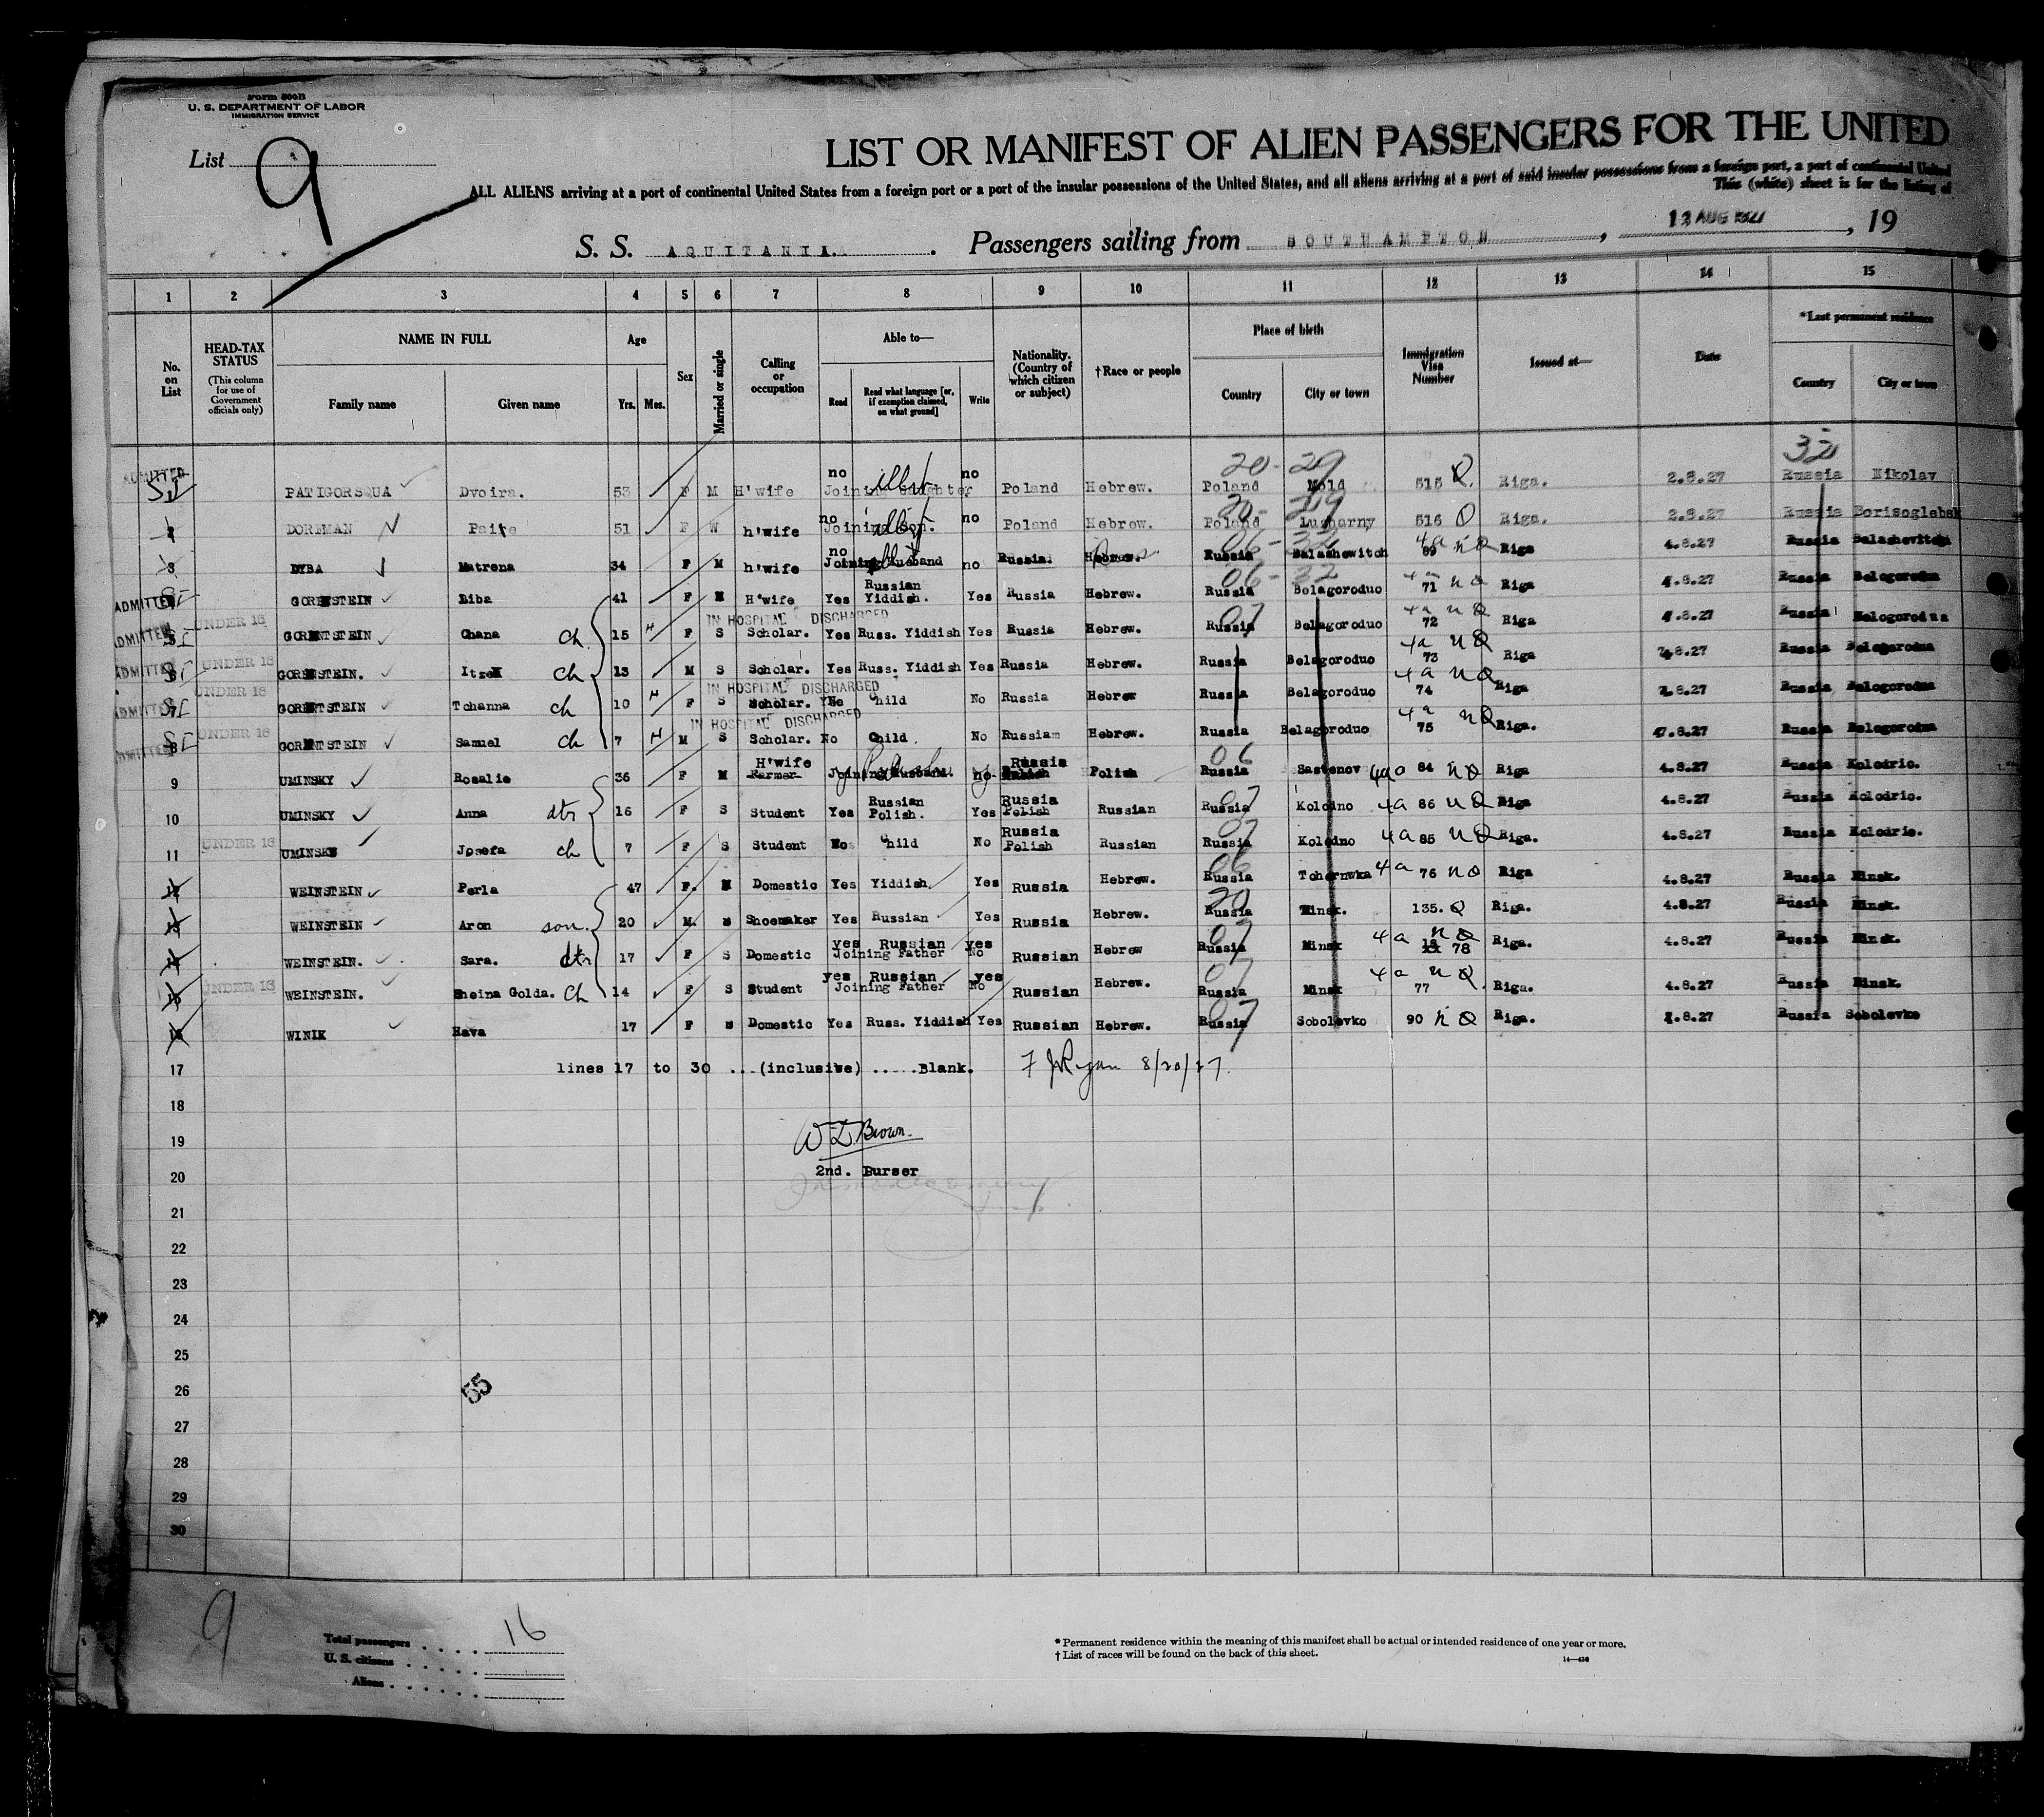 Form 500B
U. S. DEPARTMENT OF LABOR
IMMIGRATION SERVICE
List 9
LIST OR MANIFEST OF ALIEN PASSENGERS FOR THE UNITED
ALL ALIENS arriving at a port of continental United States from a foreign port or a part of the insular possessions of the United States, and all aliens arriving at a part of said insular possessions from a foreign port, a part of continental United
This (white) sheet is for the listing of
S. S. AQUITANIA. Passengers sailing from SOUTHAMPTON, 13 AUG 1927, 19
1 2 3 4 5 6 7 8 9 10 11 12 13 14 15
No. on List HEAD-TAX STATUS (This column for use of Government officials only) NAME IN FULL Family name Given name Age Yrs. Mos. Sex Married or single Calling or occupation Able to— Read Read what language [or, if exemption claimed, on what ground] Write Nationality. (Country of which citizen or subject) †Race or people Place of birth Country City or town Immigration Visa Number Issued at— Date *Last permanent residence Country City or town
20-29 32
ADMITTED SI PATIGORSQUA Dvoira. 53 F M H'wife no Joining daughter illit. no Poland Hebrew. Poland 515 Q. Riga. 2.8.27 Russia Nikolav
2 DORFMAN 51 F W h'wife no Joining Son. no Poland Hebrew. Poland Lugharny 516 Q Riga. 2.8.27 Russia Borisoglebsk
3 DYBA Matrena 34 F M h'wife no Joining Husband no Russia. Hebrew. Russia Balashewitch 4a 69 nQ Riga 4.8.27 Russia Balashevitch
ADMITTED SI Liba 41 F M H'wife Yes Russian Yiddish. Yes Russia Hebrew. Russia Belagoroduo 71 nQ Riga 4.8.27 Russia Belogorodna
ADMITTED SI UNDER 16 Chana ch 15 H F S IN HOSPITAL DISCHARGED Scholar. Yes Russ. Yiddish Yes Russia Hebrew. Russia Belagoroduo 4a 72 nQ Riga 4.8.27 Russia Belogorodna
ADMITTED SI UNDER 16 ch 13 M S Scholar. Yes Russ. Yiddish Yes Russia Hebrew. Russia Belagoroduo 4a 73 nQ Riga 4.8.27 Russia Belogorodna
ADMITTED SI UNDER 16 Tchanna ch 10 H F S IN HOSPITAL DISCHARGED Scholar. No Child No Russia Hebrew Russia Belagoroduo 4a 74 nQ Riga 4.8.27 Russia Belogorodna
ADMITTED SI 8 UNDER 16 Samuel ch 7 H M S IN HOSPITAL DISCHARGED Scholar. No Child. No Russian Hebrew. Russia Belagoroduo 4a 75 nQ Riga. 4.8.27 Russia Belogorodna
9 UMINSKY Rosalie 36 F M H'wife Farmer Joining Husband. no Russia Polish Polish Russia Sastenov 4a 84 nQ Riga 4.8.27 Russia Kolodrio.
10 UMINSKY Anna dtr 16 F S Student Yes Russian Polish. Yes Russia Polish Russian Russia Kolodno 4a 86 nQ Riga 4.8.27 Russia Kolodrio.
11 UNDER 16 UMINSKY Josefa ch 7 F S Student No Child No Russia Polish Russian Russia Kolodno 4a 85 nQ Riga. 4.8.27 Russia Kolodrio.
12 WEINSTEIN Perla 47 F. M Domestic Yes Yiddish Yes Russia Hebrew. Russia Tchernwka 4a 76 nQ Riga 4.8.27 Russia Minsk.
13 WEINSTEIN Aron son. 20 M. S Shoemaker Yes Russian Yes Russia Hebrew. Russia Minsk. 135. Q Riga. 4.8.27 Russia Minsk.
14 WEINSTEIN. Sara. dtr 17 F S Domestic yes Russian yes Joining Father No Russian Hebrew Russia Minsk 4a 78 nQ Riga. 4.8.27 Russia Minsk.
15 UNDER 16 WEINSTEIN. Sheina Golda. ch 14 F S Student yes Russian yes Joining Father No Russian Hebrew. Russia Minsk 4a 77 nQ Riga. 4.8.27 Russia Minsk.
16 WINIK Hava 17 F S Domestic Yes Russ. Yiddish Yes Russian Hebrew. Russia Sobolevko 90 nQ Riga. 4.8.27 Russia Sobolevko
17 lines 17 to 30 ...(inclusive) .....Blank. F J Ryan 8/20/27.
18
19 W L Brown.
20 2nd. Purser
21
22
23
24
25
26 55
27
28
29
30
9
Total passengers 16
U. S. citizens
Aliens
* Permanent residence within the meaning of this manifest shall be actual or intended residence of one year or more.
† List of races will be found on the back of this sheet.
14—430